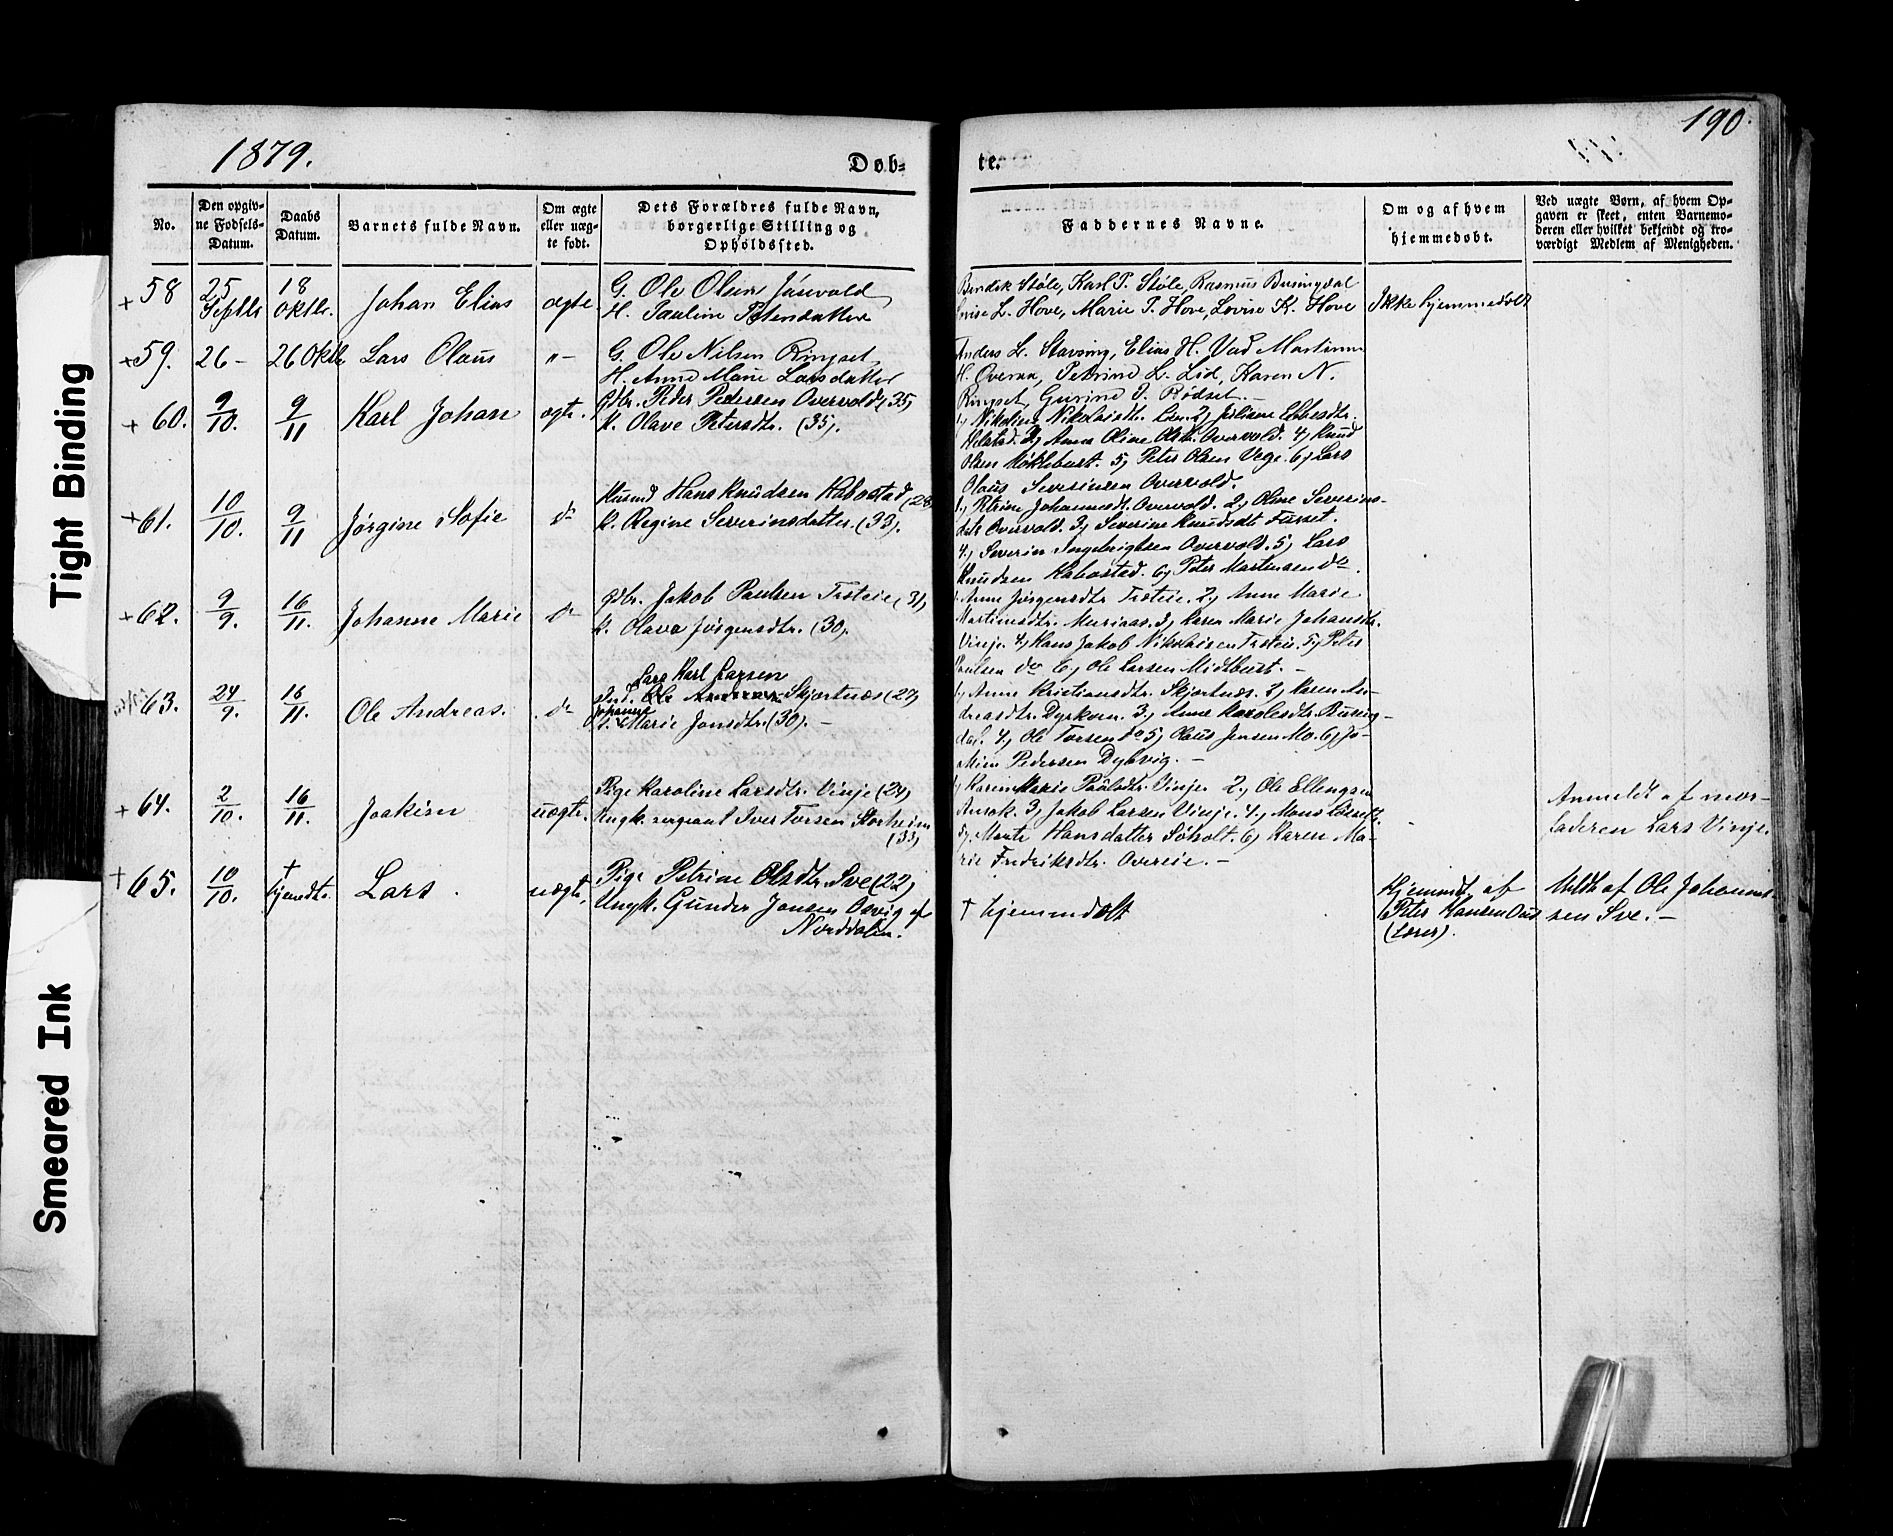 190.
1879.
Døb-
te.
No.
Den opgiv-
ne Fødsels-
Datum.
Daabs
Datum.
Barnets fulde Navn.
Om ægte
eller uæg-
te født.
Dets Forældres fulde Navn,
borgerlige Stilling og
Opholdssted.
Faddernes Navne.
Om og af hvem
hjemmedøbt.
Ved uægte Børn, af hvem Op-
gaven er skeet, enten Barnemo-
deren eller hvilket bekjendt og tro-
værdigt Medlem af Menigheden.
+ 58
25
Septbr
18
Oktbr.
Johan Elias
ægte
G. Ole Olsen
H. Pauline Petersdatter
Bendik Støle, Karl P. Støle, Rasmus Busingdal
L. Hove, Marie P. Hove, Lovise K. Hove
Ikke hjemmedøbt
+ 59.
26 -
26 Oktb
Lars Olaus
" -
G. Ole Nilsen Ringset
H. Anne Marie Larsdatter
Anders L. Stavseng, Elias H. Vad
H. Overaa, Petrine L. Lid, Karen N.
Ringset, Gurine P. Rødset. -
+ 60.
9/10.
9/11
Karl Johan
ægte.
Gbr. Peder Pedersen Overvold (35)
K. Olave Petersdtr. (35).
1, Nikoline Nikolaisdtr. 2, Juliane Ebbesdtr.
Helstad. 3, Anne Oline Olsdtr. Overvold. 4, Knud
Olsen Møklebust. 5, Peter Olsen Vege. 6, Lars
Olaus Severinsen Overvold.
+ 61.
10/10.
9/11
Jørgine Sofie
do
Husmd Hans Knudsen Kabostad (28
K. Regine Severinsdatter. (33).
1, Petrine Johannesdt. Overvold. 2, Oline Severins-
datr Overvold. 3, Severine Knudsdt Furset.
4, Severin Ingebrigtsen Overvold. 5, Lars
Knudsen Kabostad. 6, Peter Martinsen do.
+ 62.
9/9.
16/11.
Johanne Marie
do
Gbr. Jakob Paulsen Tisteie (31)
K. Olava Jørgensdtr. (30).
1, Anne Jørgensdtr Tisteie. 2, Anne Marie
Martinusdtr. Mursaas. 3, Karen Marie Johansdtr.
Vinje. 4, Hans Jakob Nikolaisen Tisteie. 5, Peter
Paulsen do 6, Ole Larsen Midtbust. -
63.
24/9.
16/11.
Ole Andreas.
do
Lars Karl Larsen
Ole Andreas Skjortnæs (27)
Johanne
K. Marie Jonsdtr. (30). -
1, Anne Kristiansdtr. Skjortnæs. 2, Karen An-
dreasdtr. Dyrkorn. 3, Anne Karolusdtr. Busing-
dal. 4, Ole Torsen do 5, Olaus Jensen Mo. 6, Jo-
Pedersen Dybvig. -
+ 64.
2/10.
16/11.
Joakim
uægte.
Pige Karoline Larsdtr. Vinje (24)
Ungk. sergeant Iver Torsen Storheim
(33)
1, Karen Marie Paulsdtr. Vinje 2, Ole Ellingsen
3, Jakob Larsen Vinje. 4, Mons
5, Marte Hansdatter Søholt. 6, Karen Ma-
rie Fredriksdtr.Övreie. -
Anmeldt af mor-
faderen Lars Vinje.
+ 65.
10/10.
+
hjemdt.
Lars.
uægte.
Pige Petrine Olsdtr. Sve (22)
Ungk. Gunder Jonsen af
Norddalen.
+ hjemmdøbt
Hjemmdt. af
Peter Hansen
(Lærer).
Meldt af Ole Johannes-
sen Sve. -
Tight Binding
Smeared Ink